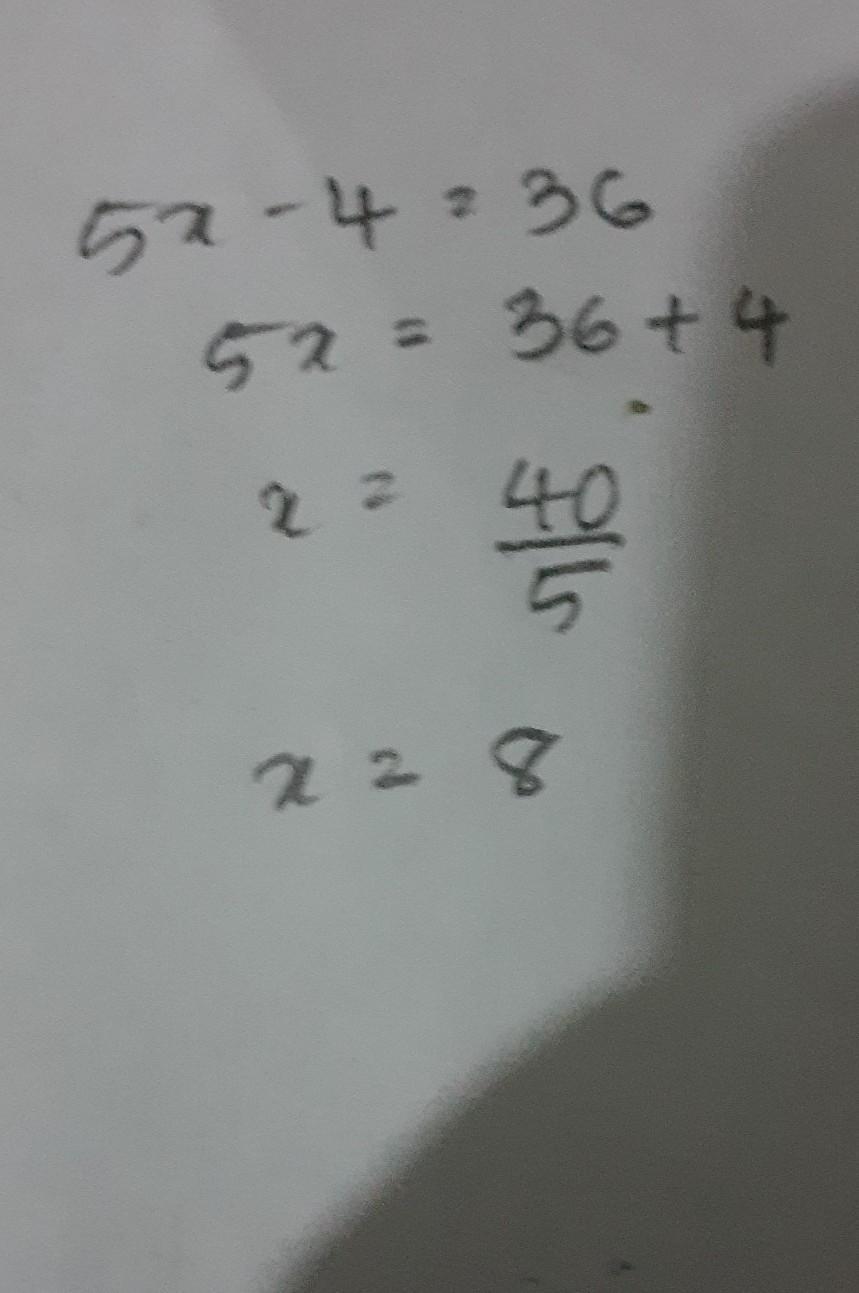 5x - 4 = 36
5x = 36 + 4
x = 40/5
x = 8